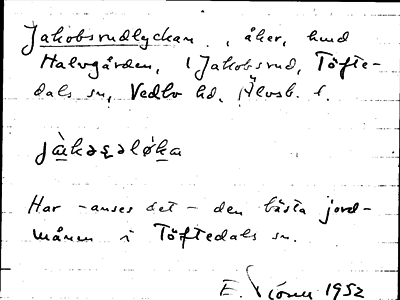 Jakobsrudlyckan, åker, hmd
Halvgården, 1 Jakobsrud, Töfte-
dals sn, Vedbo hd, Älvsb. l.
Har - anses det - den bästa jord-
månen i Töftedals sn.
E. 1952